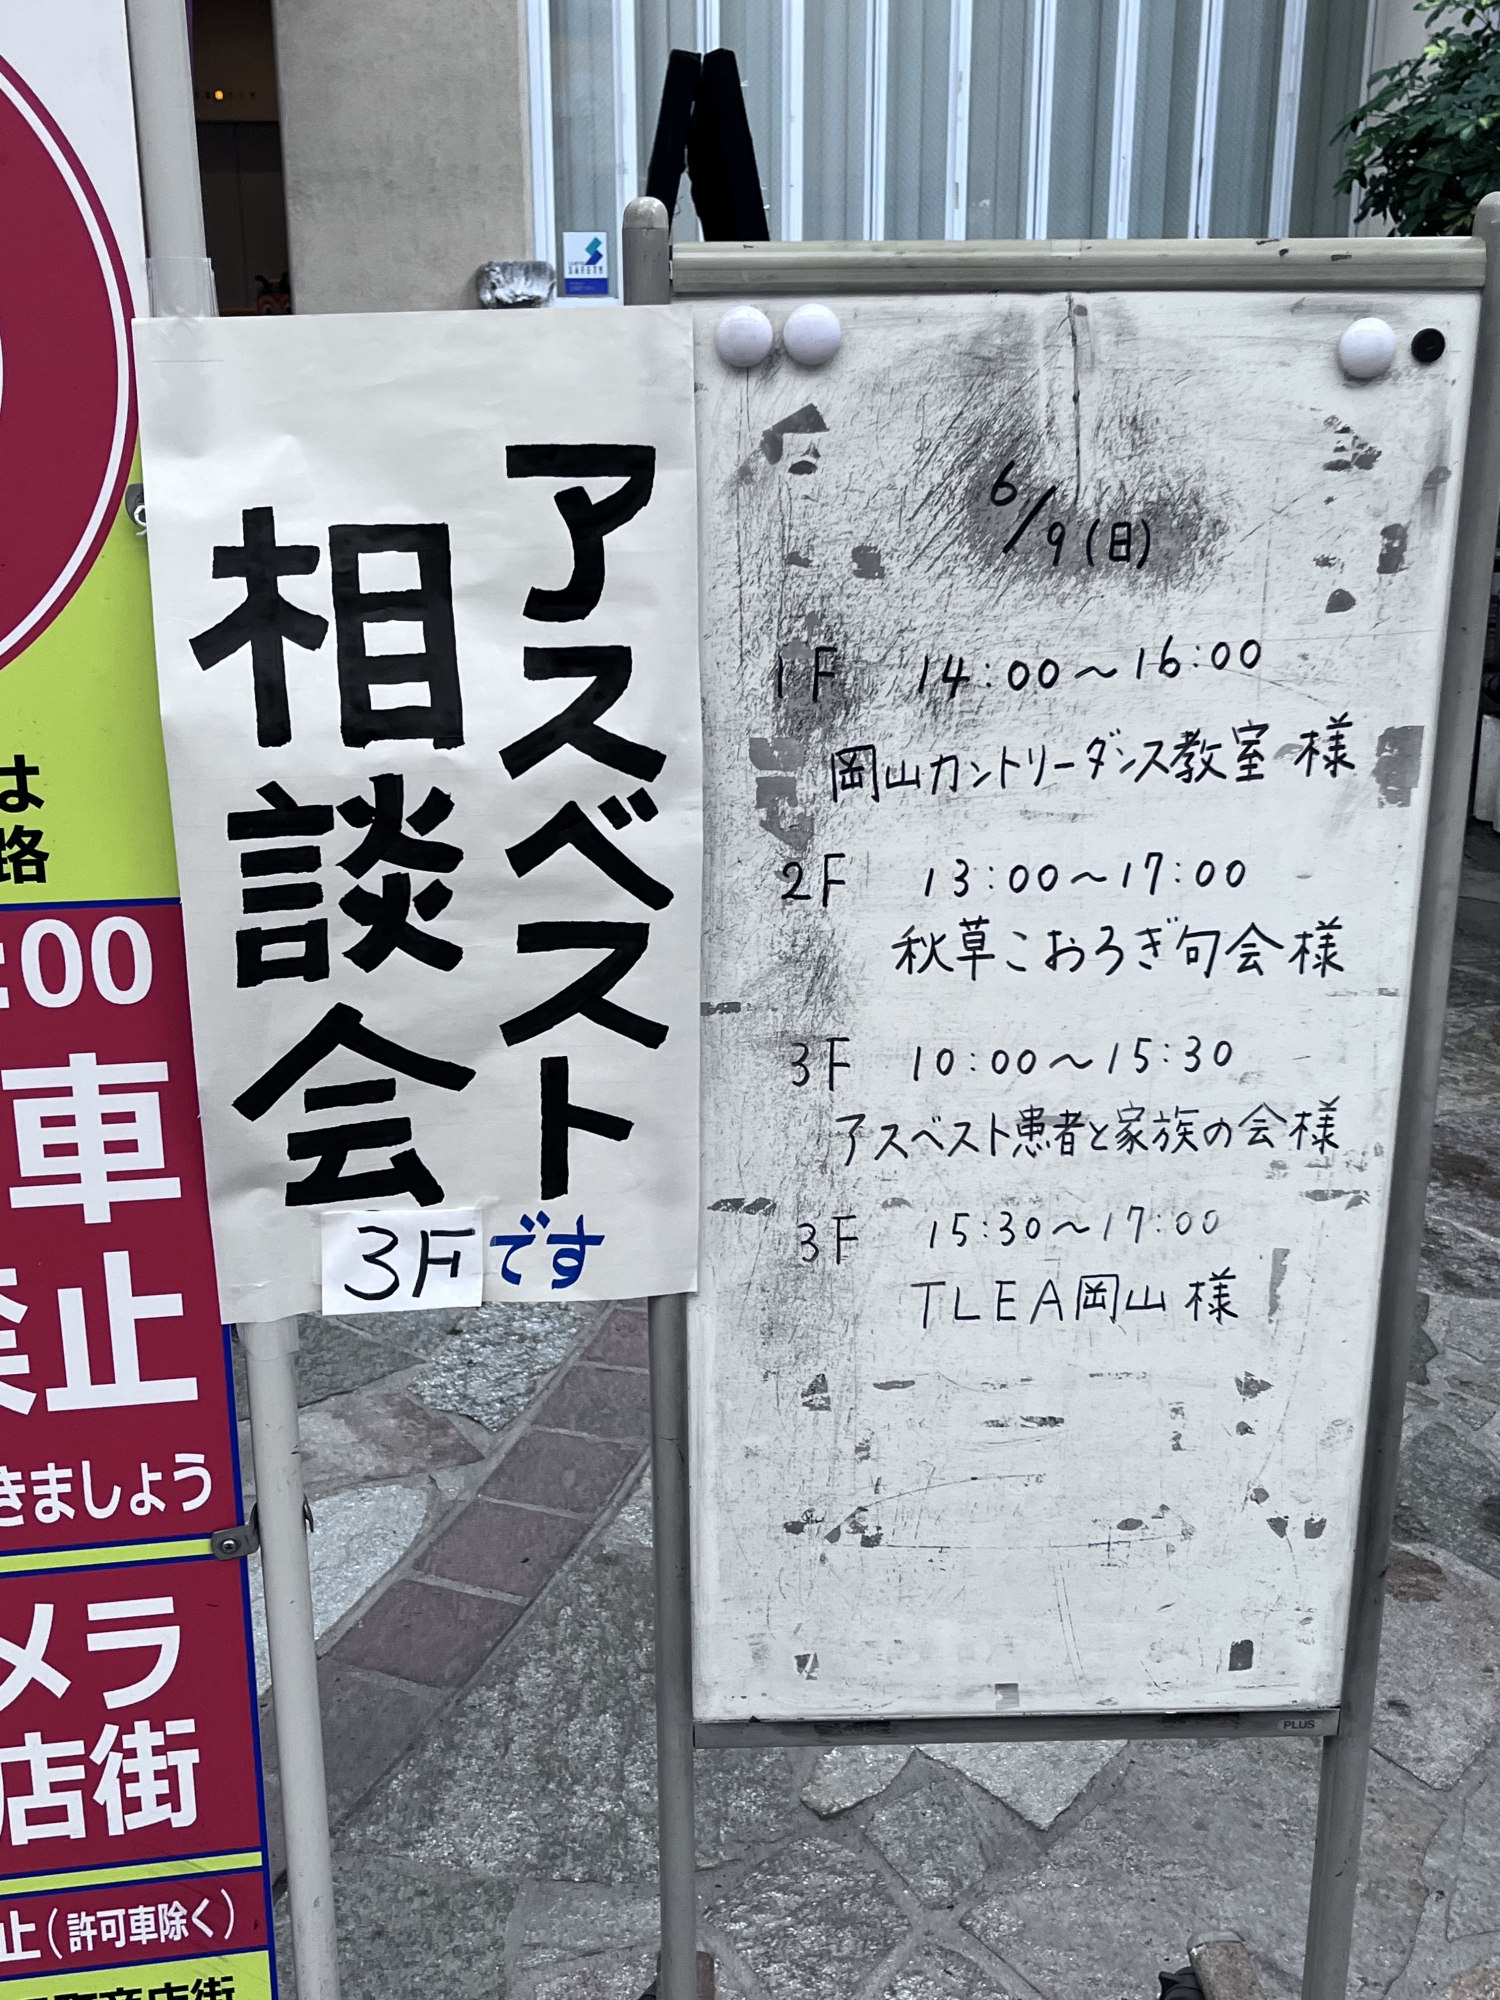 アスベスト
相談会
3Fです
6/9(日)
1F 14:00～16:00
岡山カントリーダンス教室 様
2F 13:00～17:00
秋草こおろぎ句会 様
3F 10:00～15:30
アスベスト患者と家族の会 様
3F 15:30～17:00
TLEA岡山 様
PLUS
は
路
:00
車
禁止
きましょう
メラ
店街
止(許可車除く)
町商店街